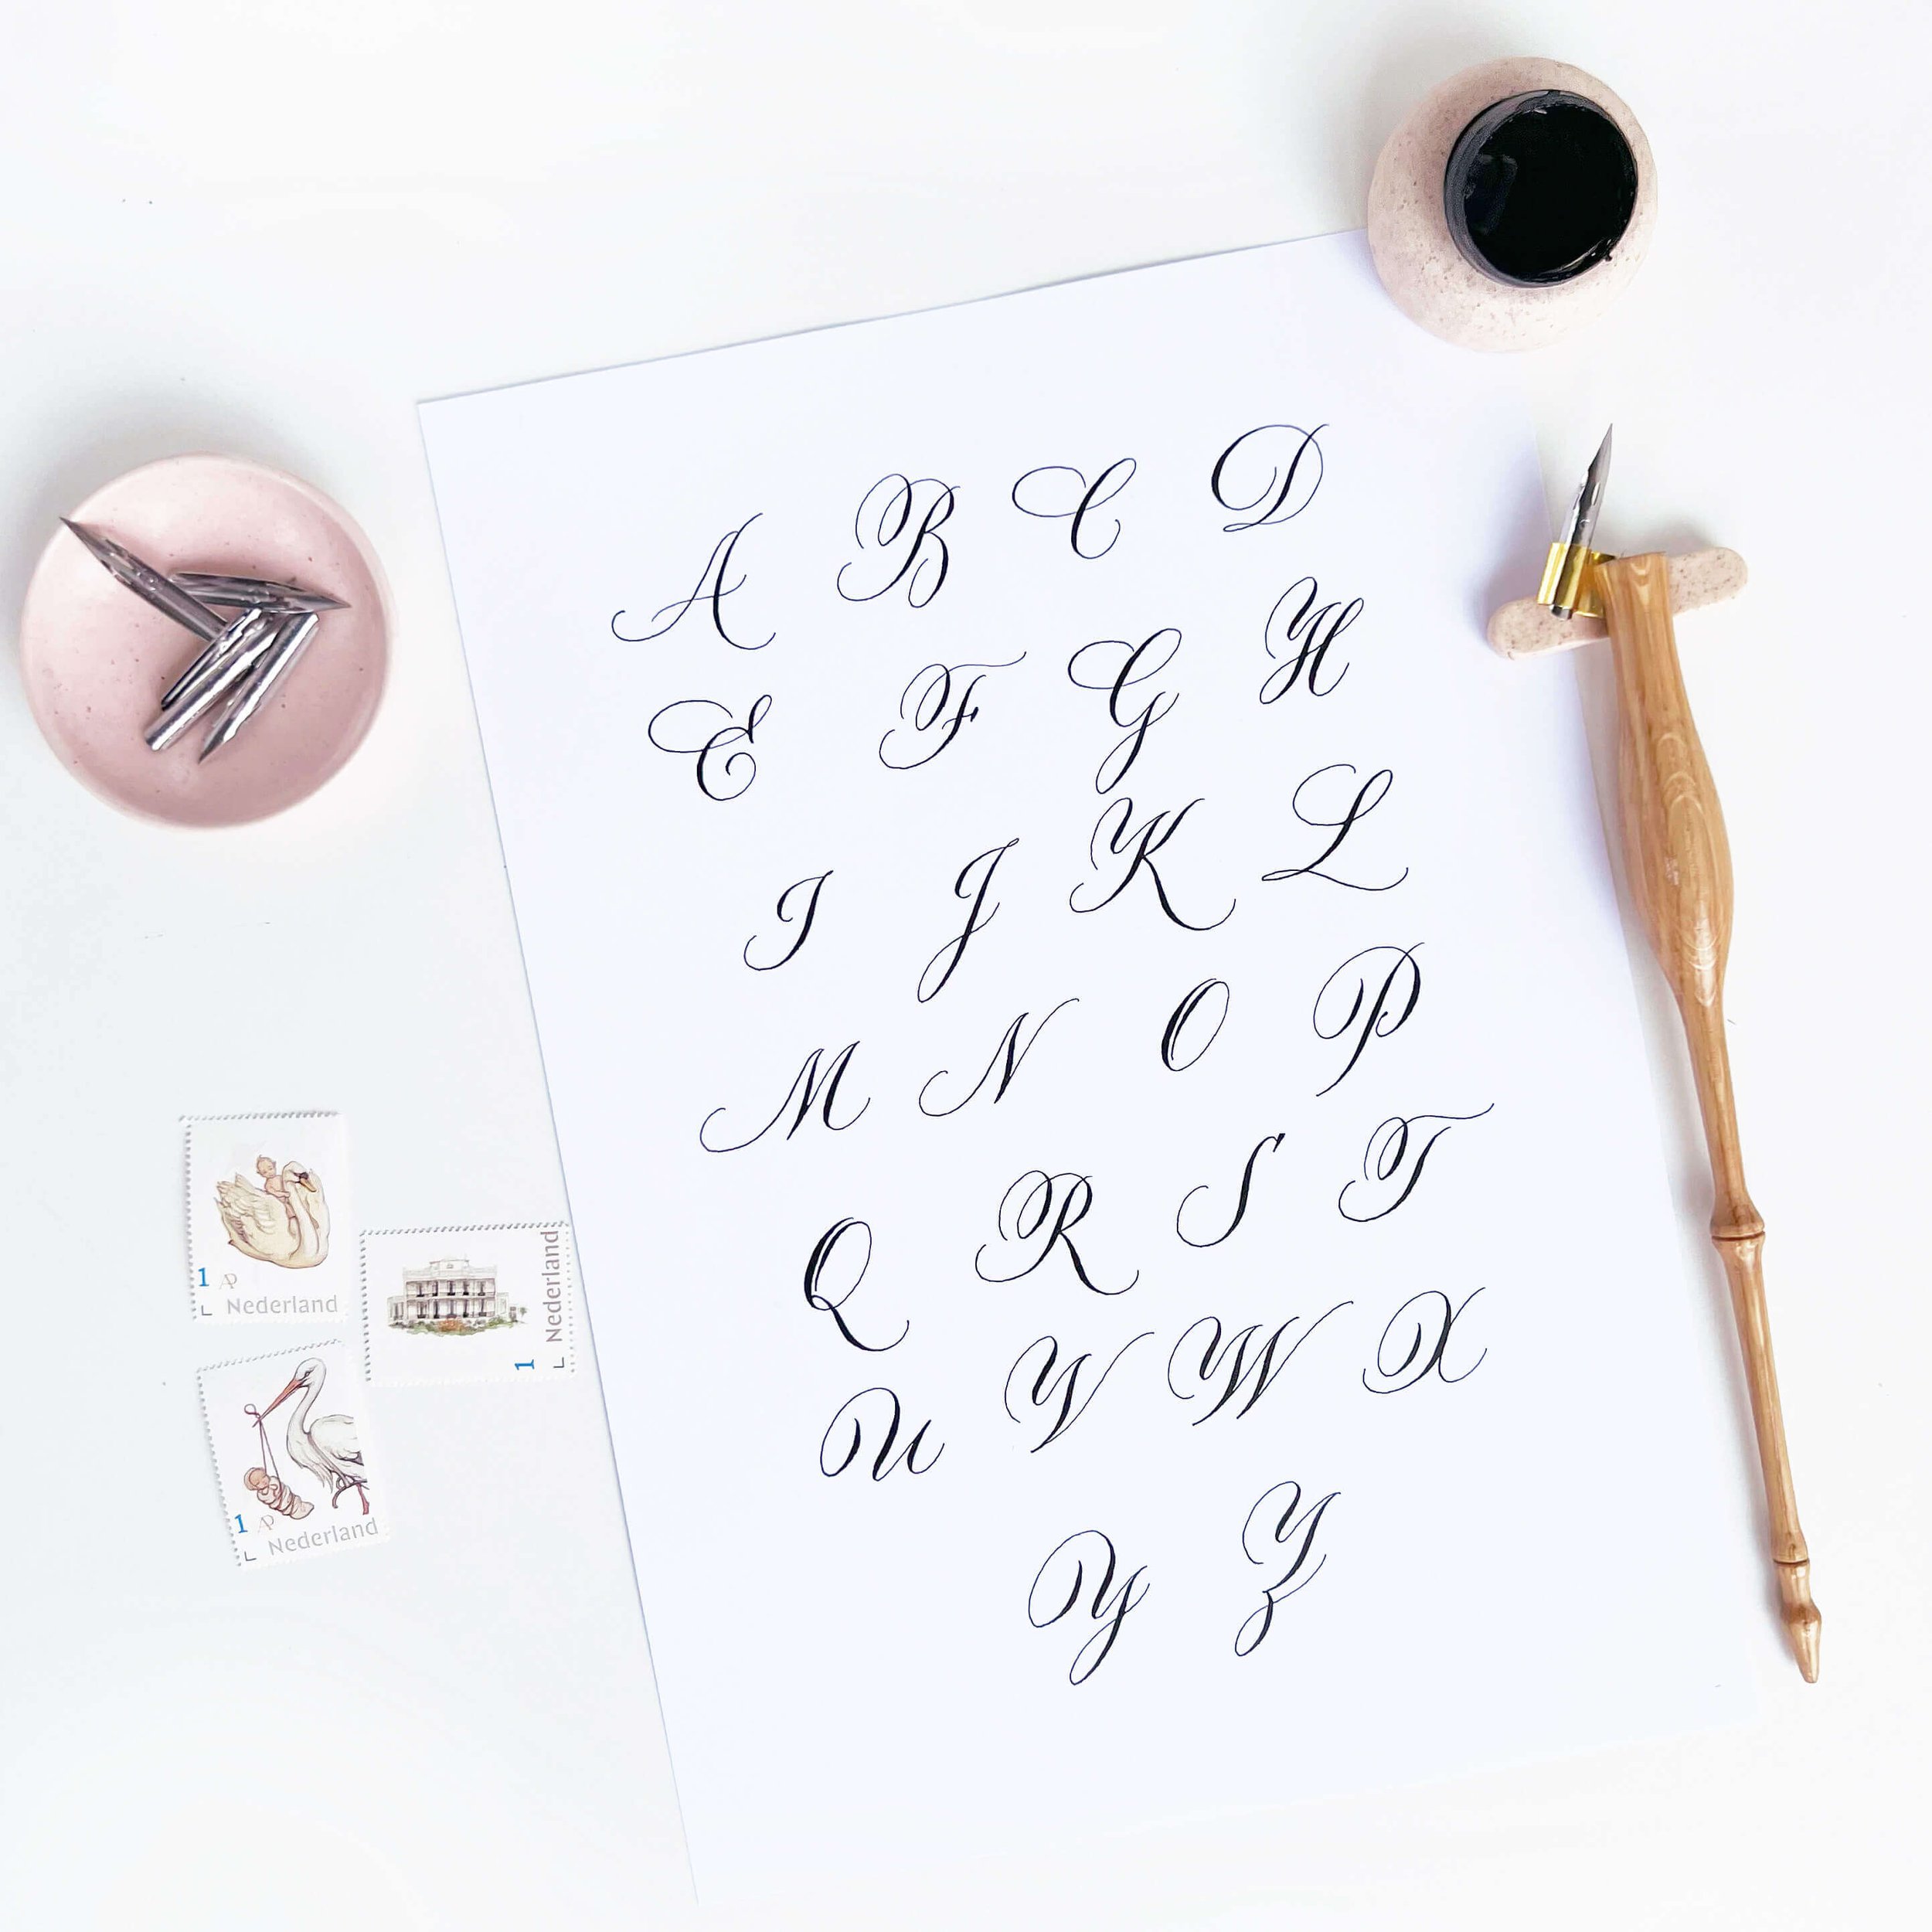 A B C D
E F G H
I J K L
M N O P
Q R S T
U V W X
Y Z
1 AP
L Nederland
1
L Nederland
1 AP
L Nederland